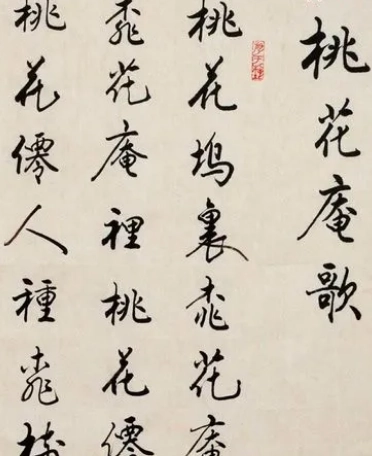 桃花庵歌
桃花坞裏桃花庵
桃花庵裡桃花僊
桃花僊人種桃樹